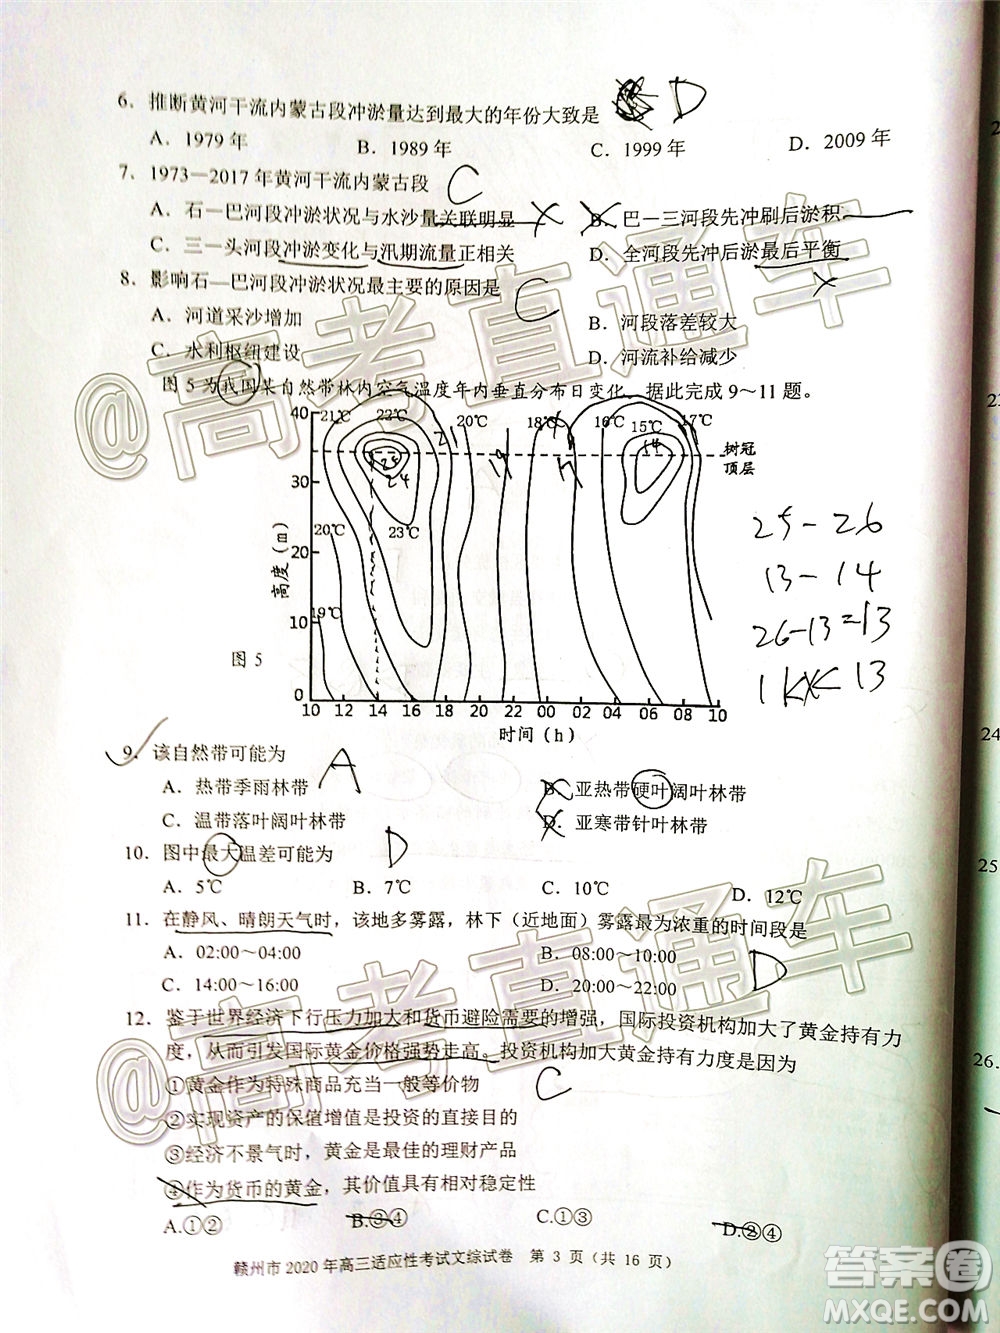 6．推断黄河干流内蒙古段冲淤量达到最大的年份大致是 D
A．1979 年 B．1989 年 C．1999 年 D．2009 年
7．1973—2017 年黄河干流内蒙古段 C
A．石—巴河段冲淤状况与水沙量关联明显 B．巴—三河段先冲刷后淤积
C．三—头河段冲淤变化与汛期流量正相关 D．全河段先冲后淤最后平衡
8．影响石—巴河段冲淤状况最主要的原因是 C
A．河道采沙增加 B．河段落差较大
C．水利枢纽建设 D．河流补给减少
图 5 为我国某自然带林内空气温度年内垂直分布日变化。据此完成 9～11 题。
40 21℃ 22℃ 21 20℃ 18℃ 16℃ 15℃ 17℃
14 树冠
25 19 17 顶层
30 24
23℃
25-26
20℃
20
13-14
高度（m）
19℃
10
26-13=13
图 5
0
1 13
10 12 14 16 18 20 22 00 02 04 06 08 10
时间（h）
9．该自然带可能为 A
A．热带季雨林带 B．亚热带硬叶阔叶林带
C．温带落叶阔叶林带 D．亚寒带针叶林带
10．图中最大温差可能为 D
A．5℃ B．7℃ C．10℃ D．12℃
11．在静风、晴朗天气时，该地多雾露，林下（近地面）雾露最为浓重的时间段是
A．02:00～04:00 B．08:00～10:00 D
C．14:00～16:00 D．20:00～22:00
12．鉴于世界经济下行压力加大和货币避险需要的增强，国际投资机构加大了黄金持有力
度，从而引发国际黄金价格强势走高。投资机构加大黄金持有力度是因为
①黄金作为特殊商品充当一般等价物 C
②实现资产的保值增值是投资的直接目的
③经济不景气时，黄金是最佳的理财产品
④作为货币的黄金，其价值具有相对稳定性
A.①② B.③④ C.①③ D.②④
赣州市 2020 年高三适应性考试文综试卷 第 3 页（共 16 页）
@高考直通车
@高考直通车
答案圈
MXQE.COM
23
24
25
26.